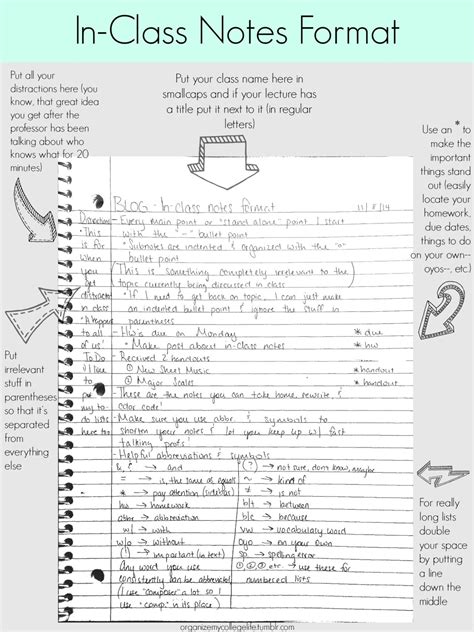 In-Class Notes Format
Put all your
distractions here (you
know, that great idea
you get after the
professor has been
talking about who
knows what for 20
minutes)
Put your class name here in
smallcaps and if your lecture has
a title put it next to it (in regular
letters)
Use an *
to
make the
important
things stand
out (easily
locate your
homework,
due dates,
things to do
on your own--
oyos--, etc.)
Put
irrelevant
stuff in
parentheses
so that it's
separated
from
everything
else
For really
long lists
double
your space
by putting
a line
down the
middle
BLOG - In-class notes format 11/5/14
Distractions - Every main point or "stand alone" point I start
"This with the "-" bullet point
is for " Subnotes are indented & organized with the "a"
when bullet point
you (This is something completely irrelevant to the
get topic currently being discussed in class
distracted " If I need to get back on topic, I can just make
in class an indented bullet point & ignore the stuff in
"It happens parentheses
to all - Hw's due on Monday * due
of us" " Make post about in-class notes * hw
To Do - Received 2 handouts
"I like ① New Sheet Music * handout
to ② Major Scales * handout
put - These are the notes you can take home, rewrite, &
my to- color code!
do lists - Make sure you use abbr. & symbols to
here too shorten your notes & let you keep up w/ fast
talking profs!
- Helpful abbreviations & symbols
&, → and (?) → not sure, don't know, maybe
= → is, the same of equals ~ → kind of
* → pay attention (sidebar) ≠ → is not
hw → homework b/t → between
abbr → abbreviation b/c → because
w/ → with vw → vocabulary word
w/o → without oyo → on your own
(!) → important (in text) sp → spelling error
Any word you use ①, ②, etc → use these for
consistently can be abbreviated numbered lists
I use "composer" a lot so I
use "comp." in its place)
organizemycollegelife.tumblr.com